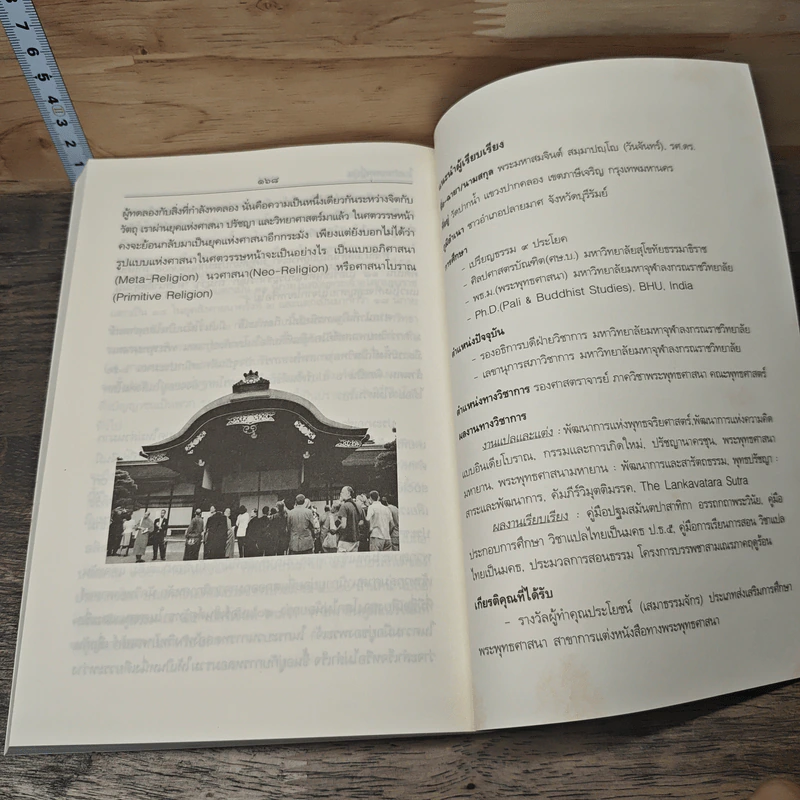 8
7
6
5
4
3
2
1
๑๖๘
ผู้ทดลองกับสิ่งที่กำลังทดลอง นั่นคือความเป็นหนึ่งเดียวกันระหว่างจิตกับ
วัตถุ เราผ่านยุคแห่งศาสนา ปรัชญา และวิทยาศาสตร์มาแล้ว ในศตวรรษหน้า
คงจะย้อนกลับมาเป็นยุคแห่งศาสนาอีกกระมัง เพียงแต่ยังบอกไม่ได้ว่า
รูปแบบแห่งศาสนาในศตวรรษหน้าจะเป็นอย่างไร เป็นแบบอภิศาสนา
(Meta-Religion) นวศาสนา(Neo-Religion) หรือศาสนาโบราณ
(Primitive Religion)
แนะนำผู้เรียบเรียง
พระมหาสมจินต์ สมฺมาปญฺโญ (วันจันทร์), รศ.ดร.
วัดปากน้ำ แขวงปากคลอง เขตภาษีเจริญ กรุงเทพมหานคร
ภูมิลำเนา ชาวอำเภอปลายมาศ จังหวัดบุรีรัมย์
การศึกษา
- เปรียญธรรม ๙ ประโยค
- ศิลปศาสตรบัณฑิต(ศษ.บ.) มหาวิทยาลัยสุโขทัยธรรมาธิราช
- พธ.ม.(พระพุทธศาสนา) มหาวิทยาลัยมหาจุฬาลงกรณราชวิทยาลัย
- Ph.D.(Pali & Buddhist Studies), BHU, India
ตำแหน่งปัจจุบัน
- รองอธิการบดีฝ่ายวิชาการ มหาวิทยาลัยมหาจุฬาลงกรณราชวิทยาลัย
- เลขานุการสภาวิชาการ มหาวิทยาลัยมหาจุฬาลงกรณราชวิทยาลัย
ตำแหน่งทางวิชาการ รองศาสตราจารย์ ภาควิชาพระพุทธศาสนา คณะพุทธศาสตร์
ผลงานทางวิชาการ
งานแปลและแต่ง : พัฒนาการแห่งพุทธจริยศาสตร์,พัฒนาการแห่งความคิด
แบบอินเดียโบราณ, กรรมและการเกิดใหม่, ปรัชญานาครชุน, พระพุทธศาสนา
มหายาน, พระพุทธศาสนามหายาน : พัฒนาการและสารัตถธรรม, พุทธปรัชญา :
สาระและพัฒนาการ, คัมภีร์วิมุตติมรรค, The Lankavatara Sutra
ผลงานเรียบเรียง : คู่มือปฐมสมันตปาสาทิกา อรรถกถาพระวินัย, คู่มือ
ประกอบการศึกษา วิชาแปลไทยเป็นมคธ ป.ธ.๕, คู่มือการเรียนการสอน วิชาแปล
ไทยเป็นมคธ, ประมวลการสอนธรรม โครงการบรรพชาสามเณรภาคฤดูร้อน
เกียรติคุณที่ได้รับ
- รางวัลผู้ทำคุณประโยชน์ (เสมาธรรมจักร) ประเภทส่งเสริมการศึกษา
พระพุทธศาสนา สาขาการแต่งหนังสือทางพระพุทธศาสนา